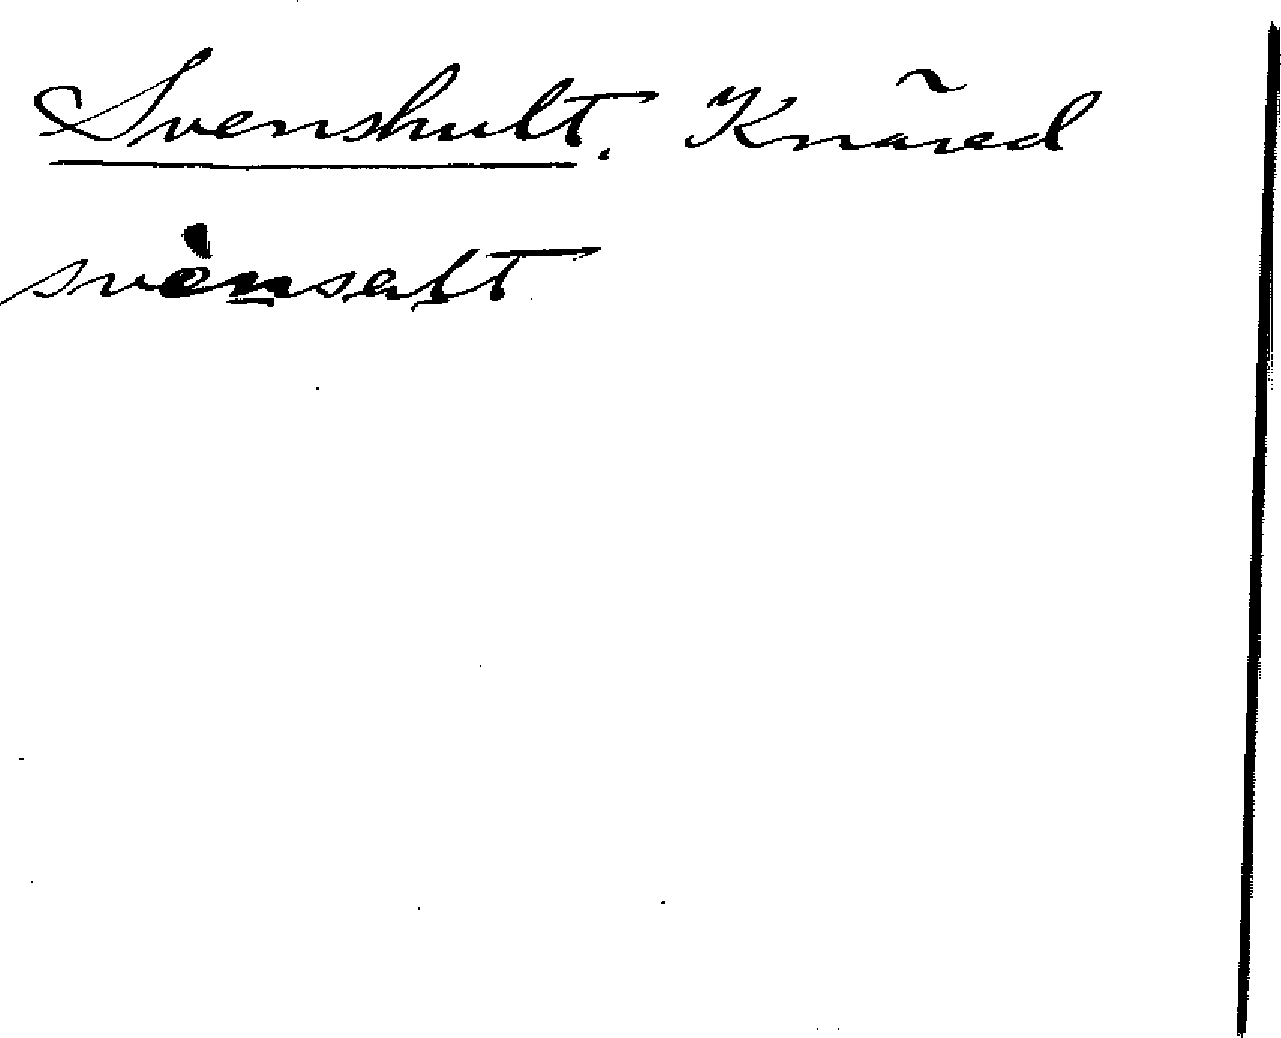 Svenshult. Knäred
svènselt